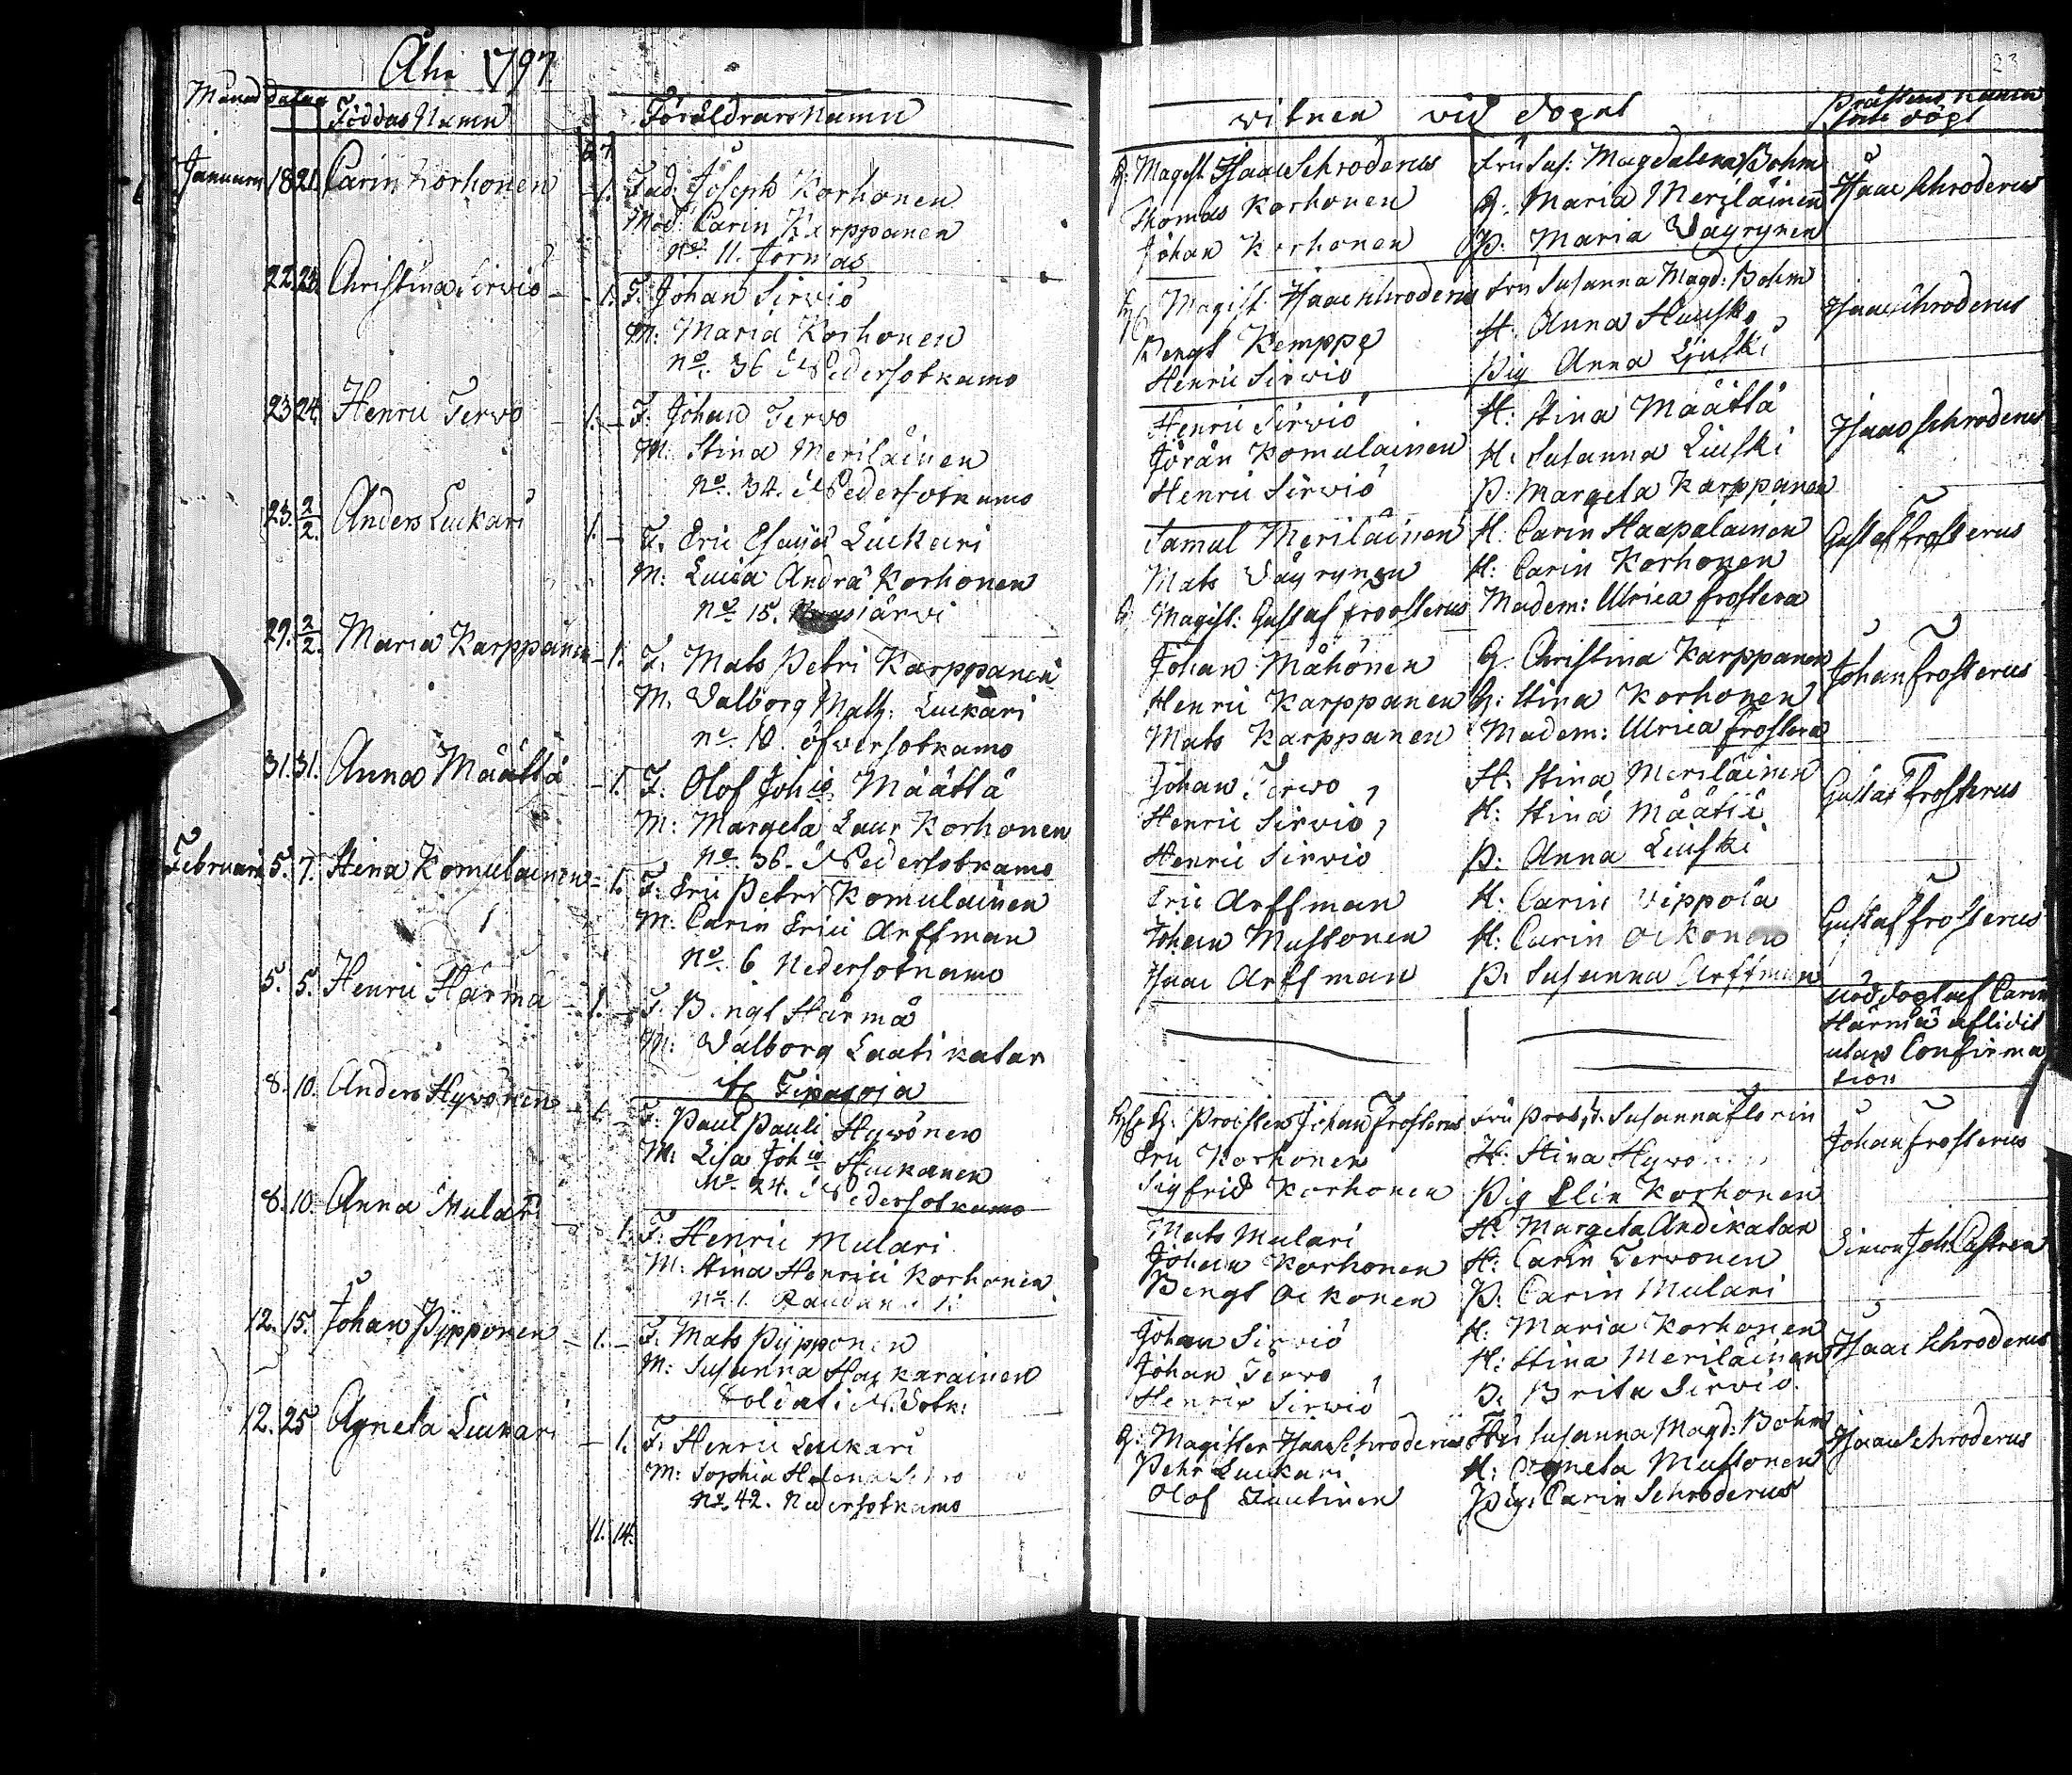 Åhr 1797.
Månad dagar
Föddas Namn
Föräldrars Namn
Januari 18 21. Carin Korhonen 1. Fad. Joseph Korhonen
Mod. Carin Karppanen
No. 11. Jormas
22. 23. Christina Sirwiö 1. F. Johan Sirwiö
M: Maria Korhonen
No. 36 Nedersotkamo
23 24. Henric Terwo 1. F: Johan Terwo
M: Stina Meriläinen
No. 34. Nedersotkamo
23. 2/2. Anders Luckari 1. F. Eric Luckari
M: Lucia Korhonen
No 15.
29. 2/2. Maria Karppanen 1. F. Mats Petri Karppanen
M. Walborg Luckari
no. 10. öfwersotkamo
31. 31. Anna Määttä 1. F: Olof Määttä
M: Margeta Laur Korhonen
No 36. Nedersotkamo
Februari 5. 7. Stina Komulainen 1. F. Eric Petri Komulainen
M. Carin Erici Arffman
No. 6 Nedersotkamo
5. 5. Henric Härmä 1. F. Bengt Härmä
M: Walborg Laatikatar
Tipasoja
8. 10. Anders Hywönen 1. F. Paul Pauli Hywönen
M. Lisa Huikanen
No 24. Nedersotkamo
8. 10. Anna Mulari 1. F. Henric Mulari
M. Stina Henrici Korhonen
No 1.
12. 15. Johan Pypponen 1. F. Mats Pypponen
M: Susanna
Soldat i N.Sotk:
12. 25 Agneta Luckari 1. F. Henric Luckari
M: Sophia Helena
No. 42. Nedersotkamo
11. 14.
23
witnen wid dopet
Prästens namn
som döpt
H. Magist Isaac Schroderus Fru Sus: Magdalena Bohm Isaac Schroderus
Thomas Korhonen H. Maria Meriläinen
Johan Korhonen P. Maria Wäyrynen
Magist. Isaac Schroderus Fru Susanna Magd: Bohm Isaac Schroderus
Bengt Kemppe H. Anna
Henric Sirwiö Pig Anna Liuski
Henric Sirwiö H: Stina Määttä Isaac Schroderus
Jöran Komulainen H. Susanna Liuski
Henric Sirwiö P: Margeta Karppanen
Samul Meriläinen H. Carin Haapalainen Gustaf Frosterus
Mats Wäyrynen H: Carin Korhonen
Magist: Gustaf Frosterus Madem: Ulrica Frostera
Johan Mähönen H. Christina Karppanen Johan Frosterus
Henric Karppanen H: Stina Korhonen
Mats Karppanen Madem: Ulrica Frostera
Johan Terwo H. Stina Meriläinen Gustaf Frosterus
Henric Sirwiö H: Stina Määttä
Henric Sirwiö P: Anna Liuski
Eric Arffman H. Carin Vippola Gustaf Frosterus
Johan Mustonen H: Carin Oikonen
Isaac Arffman P. Susanna Arffman
Nöddopt af Carin
Härmä aflidit
utan Confirma
tion
Prosten Johan Frosterus Fru Susanna Florin Johan Frosterus
Eric Korhonen H: Stina
Sigfrid Korhonen Pig Elin Korhonen
Mats Mulari H. Margeta Simon Joh. Castren
Johan Korhonen H: Carin Terwonen
Bengt Oikonen P: Carin Mulari
Johan Sirwiö H: Maria Korhonen Isaac Schroderus
Johan Terwo H: Stina Meriläinen
Henric Sirwiö P. Brita Sirwiö
H: Magister Isaac Schroderus Fru Susanna Magd: Bohm Isaac Schroderus
Pehr Luckari H: Agneta Mustonen
Olof Pig: Carin Schroderus